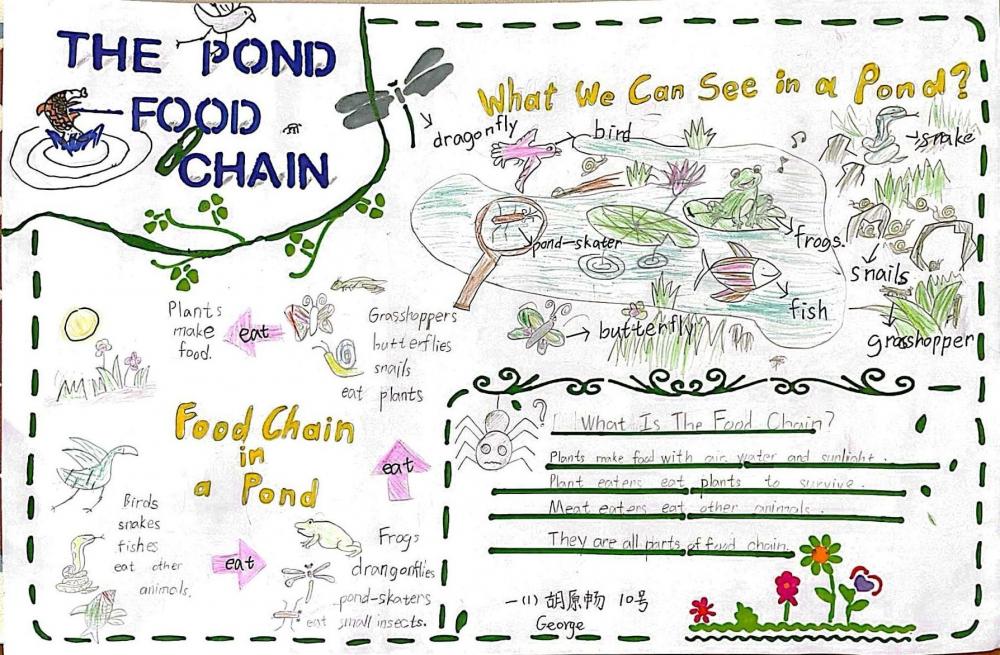 THE POND
FOOD
CHAIN
What We Can See in a Pond?
dragonfly
bird
snake
pond-skater
frogs.
snails
fish
butterfly
grasshopper
Plants
make
food.
eat
Grasshoppers
butterflies
snails
eat plants
eat
Food Chain
in
a Pond
Birds
snakes
fishes
eat other
animals.
eat
Frogs
drangonflies
pond-skaters
eat small insects.
?
What Is The Food Chain?
Plants make food with air, water and sunlight.
Plant eaters eat plants to survive.
Meat eaters eat other animals.
They are all parts of food chain.
一(1) 胡原畅 10号
George